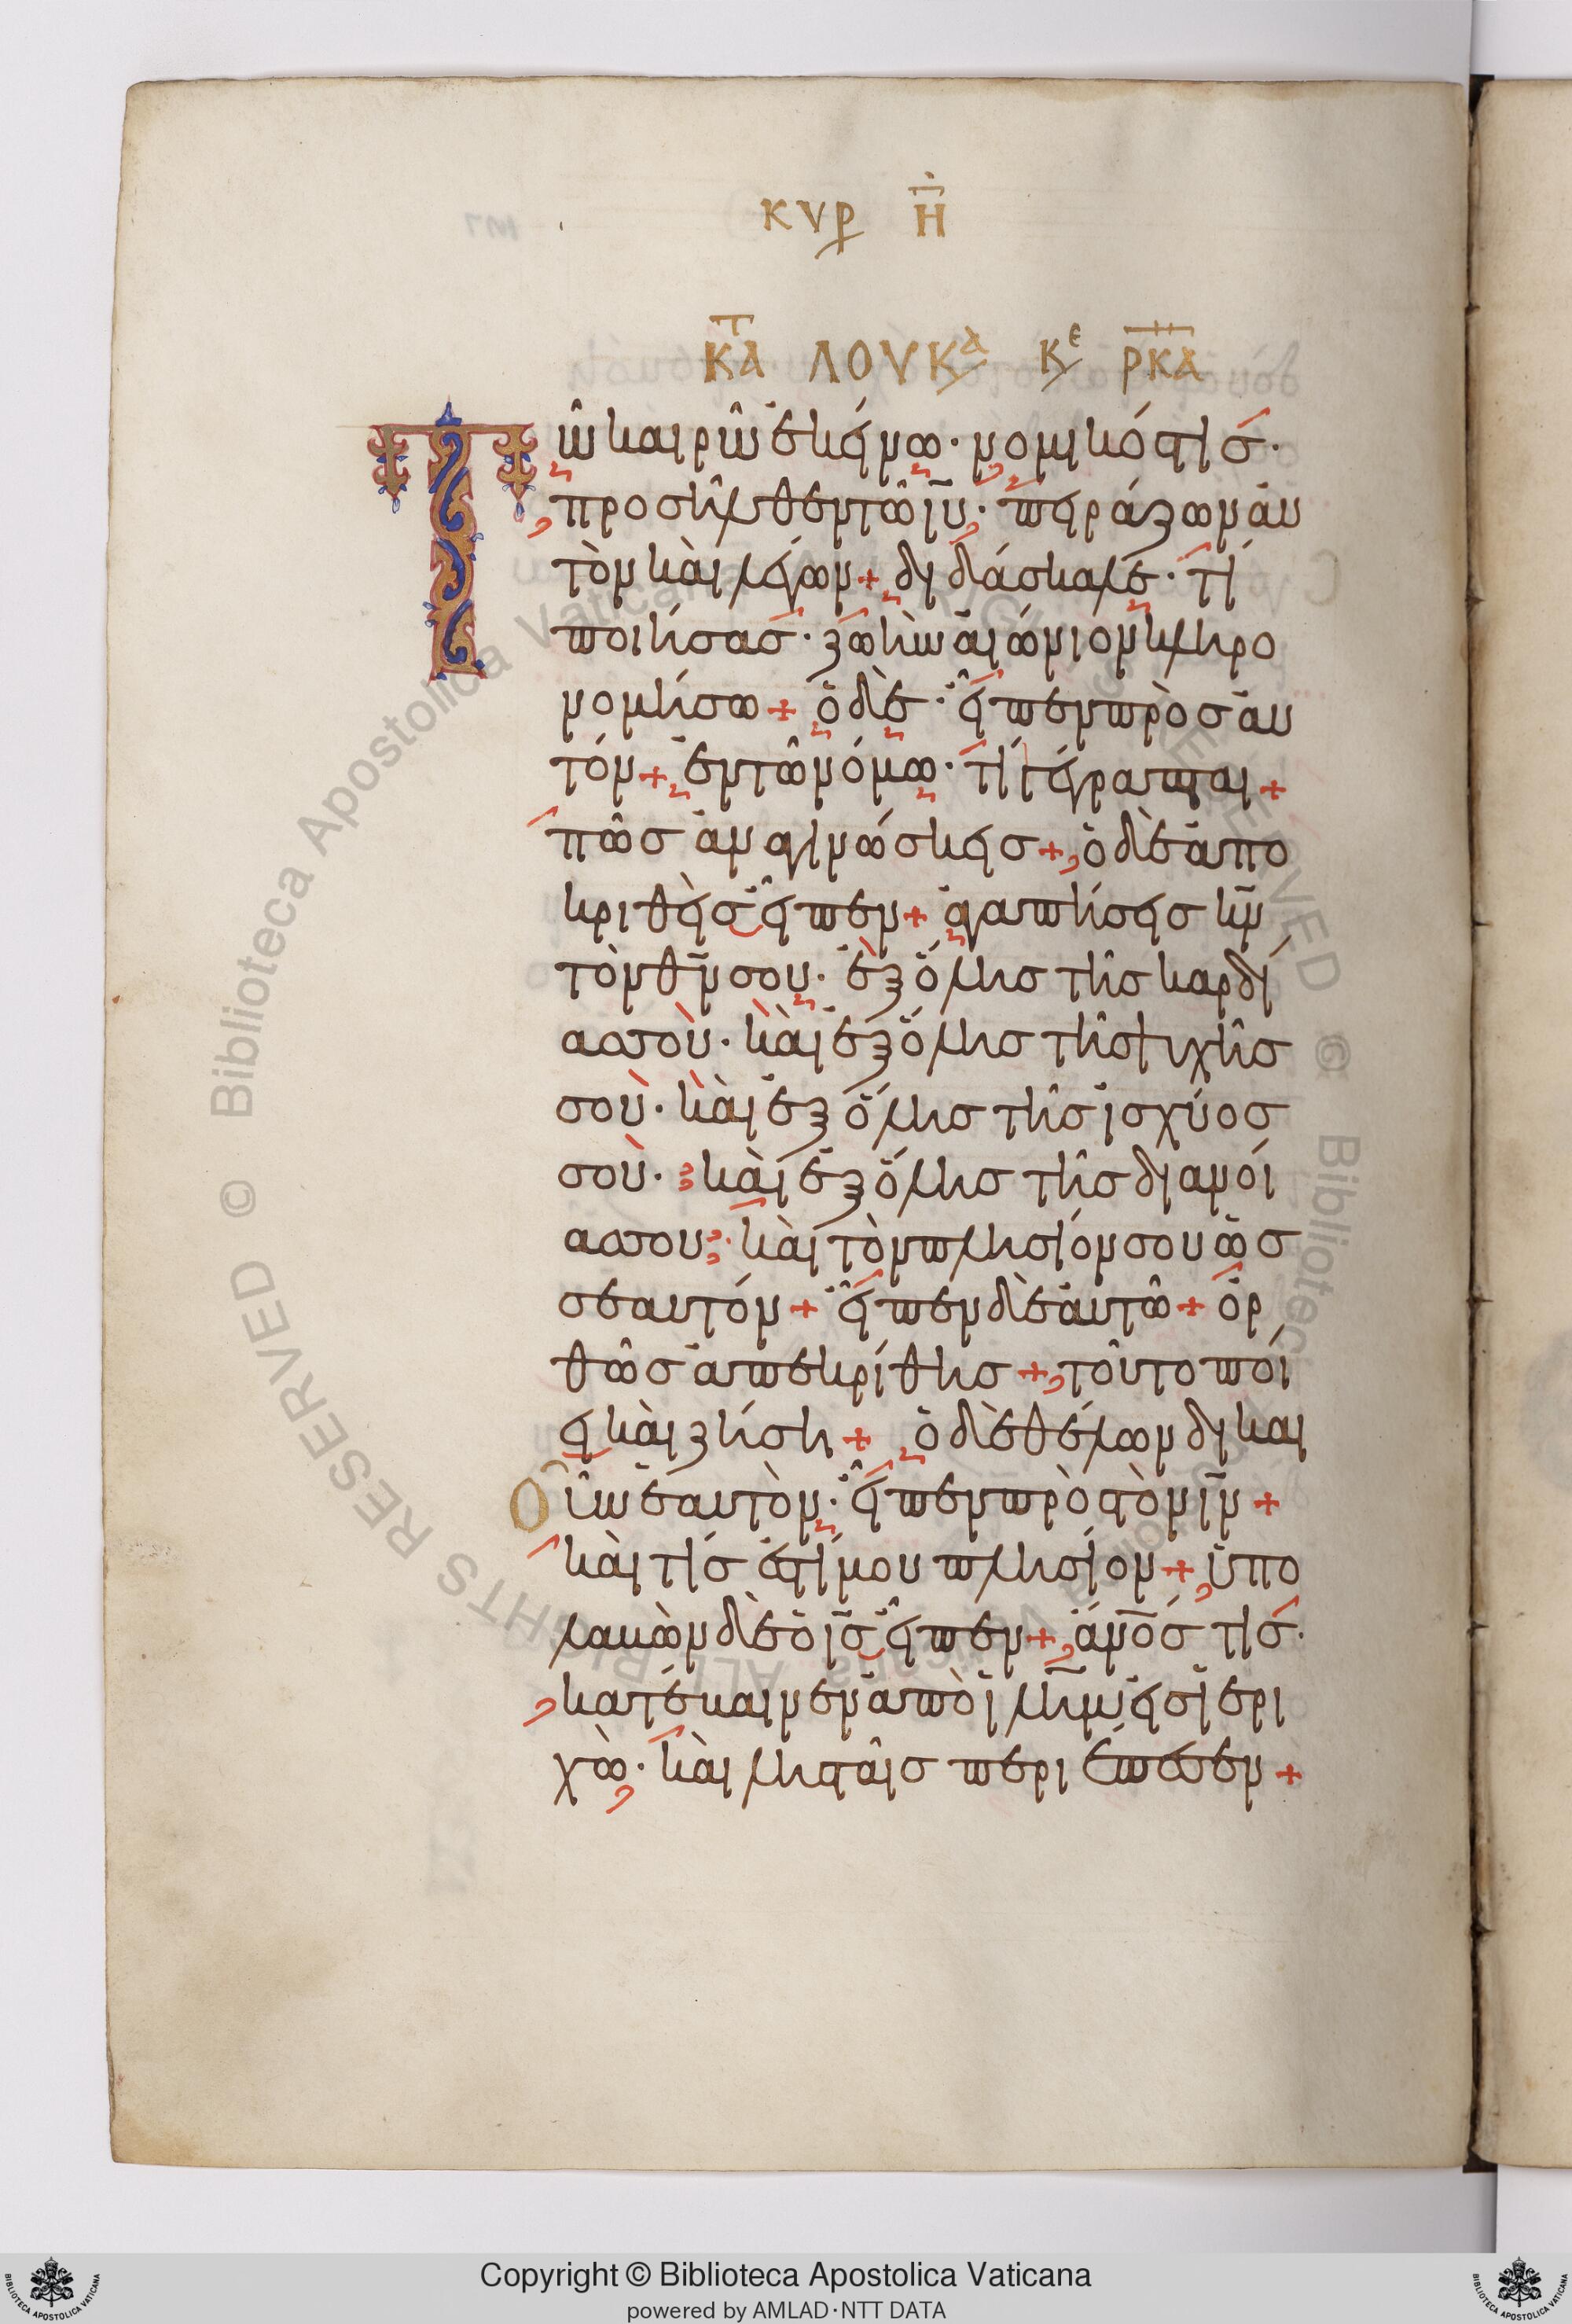 κυρ Η
κατ λουκα κε ρκα
Τῶ καιρῶ ἐκείνω· νομικός τις·
προσῆλθεν τῶ ιυ· πειράζων αυ
τὸν καὶ λέγων + διδάσκαλε· τί
ποιήσας· ζωὴν αἰώνιον κληρο
νομήσω + ὁ δὲ· εἶπεν πρὸς αὐ
τόν + ἐν τῶ νόμω· τί γέγραπται +
πῶς ἀναγινώσκεις + ὁ δὲ ἀπο
κριθεὶς εἶπεν + ἀγαπήσεις κν
τὸν θν σου· ἐξ ὅλης τῆς καρδί
ας σοὺ· καὶ ἐξ ὅλης τῆς ψυχῆς
σοὺ· καὶ ἐξ ὅλης τῆς ἰσχύος
σοὺ· καὶ ἐξ ὅλης τῆς διανοί
ας σου· καὶ τὸν πλησίον σου ὡς
σεαυτόν + εἶπεν δὲ αὐτῶ + ὀρ
θῶς ἀπεκρίθης + τοῦτο ποί
ει καὶ ζήση + ὁ δὲ θέλων δικαι
οῦν ἑαυτὸν· εἶπεν πρὸς τὸν ιν +
καὶ τίς ἐστί μου πλησίον + ὑπο
λαβὼν δὲ ὁ ις εἶπεν + ἄνος τις·
κατέβαινεν ἀπὸ ιλημ εἰς ἱερι
χὼ· καὶ λησταῖς περιέπεσεν +
Copyright © Biblioteca Apostolica Vaticana
powered by AMLAD·NTT DATA